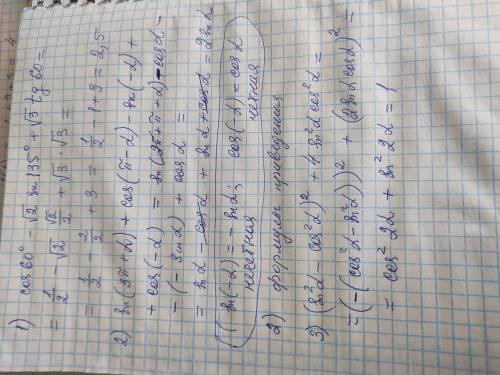 1) cos 60° - √2 sin 135° + √3 tg 60 =
= 1/2 - √2 · √2/2 + √3 · √3 =
= 1/2 - 2/2 + 3 = 1/2 - 1 + 3 = 2,5
2) sin(3π+α) + cos(π-α) - sin(-α) +
+ cos(-α) = sin(2π+π+α) - cosα -
= (- sinα) + cosα =
= sinα - cosα + sinα + cosα = 2sinα
(sin(-α) = - sinα; cos(-α) = cosα
нечётная четная
2) формулы приведения
3) (sin²α - cos²α)² + 4 sin²α cos²α =
= (-(cos²α - sin²α))² + (2 sinα cosα)² =
= cos² 2α + sin² 2α = 1